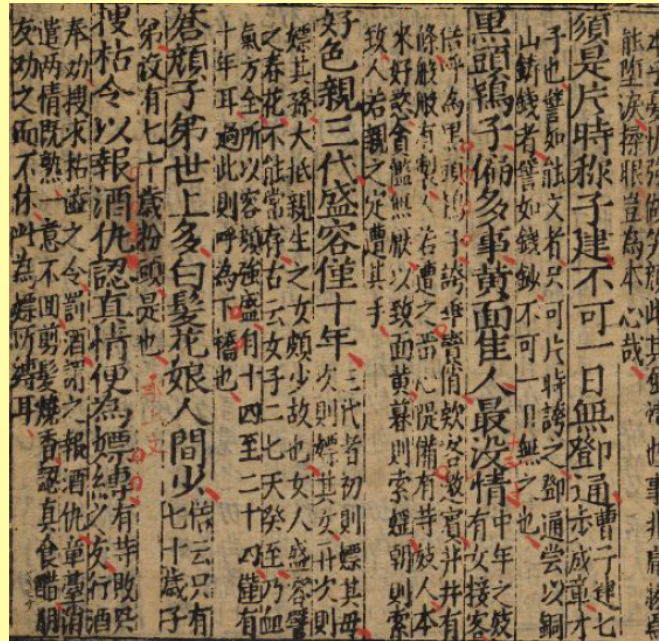 能墮淚掃眼豈為本心哉
須是片時称子建不可一日無鄧通曹子建七
步成章才
子也譬如能文者只可片時誇之鄧通嘗以銅
山鑄錢者譬如錢鈔不可一日無之也
黑頭鴇子偏多事黃面佳人最没情中年之妓
有女接客
俗呼為黑頭鴇子誇賣俏欸客邀賓井井有
條般般有製人若遭之當心隄備有等妓人本
來好飲貪饞無厭以致面黃暮則索媼朝則索
致人若親之定遭其手
好色親三代盛容僅十年三代者初則嫖其母
次則嫖其女廾次則
嫖其孫大抵親生之女頗少故也女人盛容譬
之春花不能當存古云女子二七天癸至乃血
氣方全所以容顏強盛有十四至二十四僅有
十年耳過此則呼為下橋也
蒼顏子弟世上多白髮花娘人間少俗云只有
七十歲子
弟没有七十歲粉頭是也
搜枯令以報酒仇認真情便為嫖縛有等敗只
之友行酒
奉劝搜求枯澁之令罰酒謂之報酒仇章臺消
遣两情既熟一意不回剪髮燒香認真食醋朋
友劝之而不休叫為嫖所縛耳